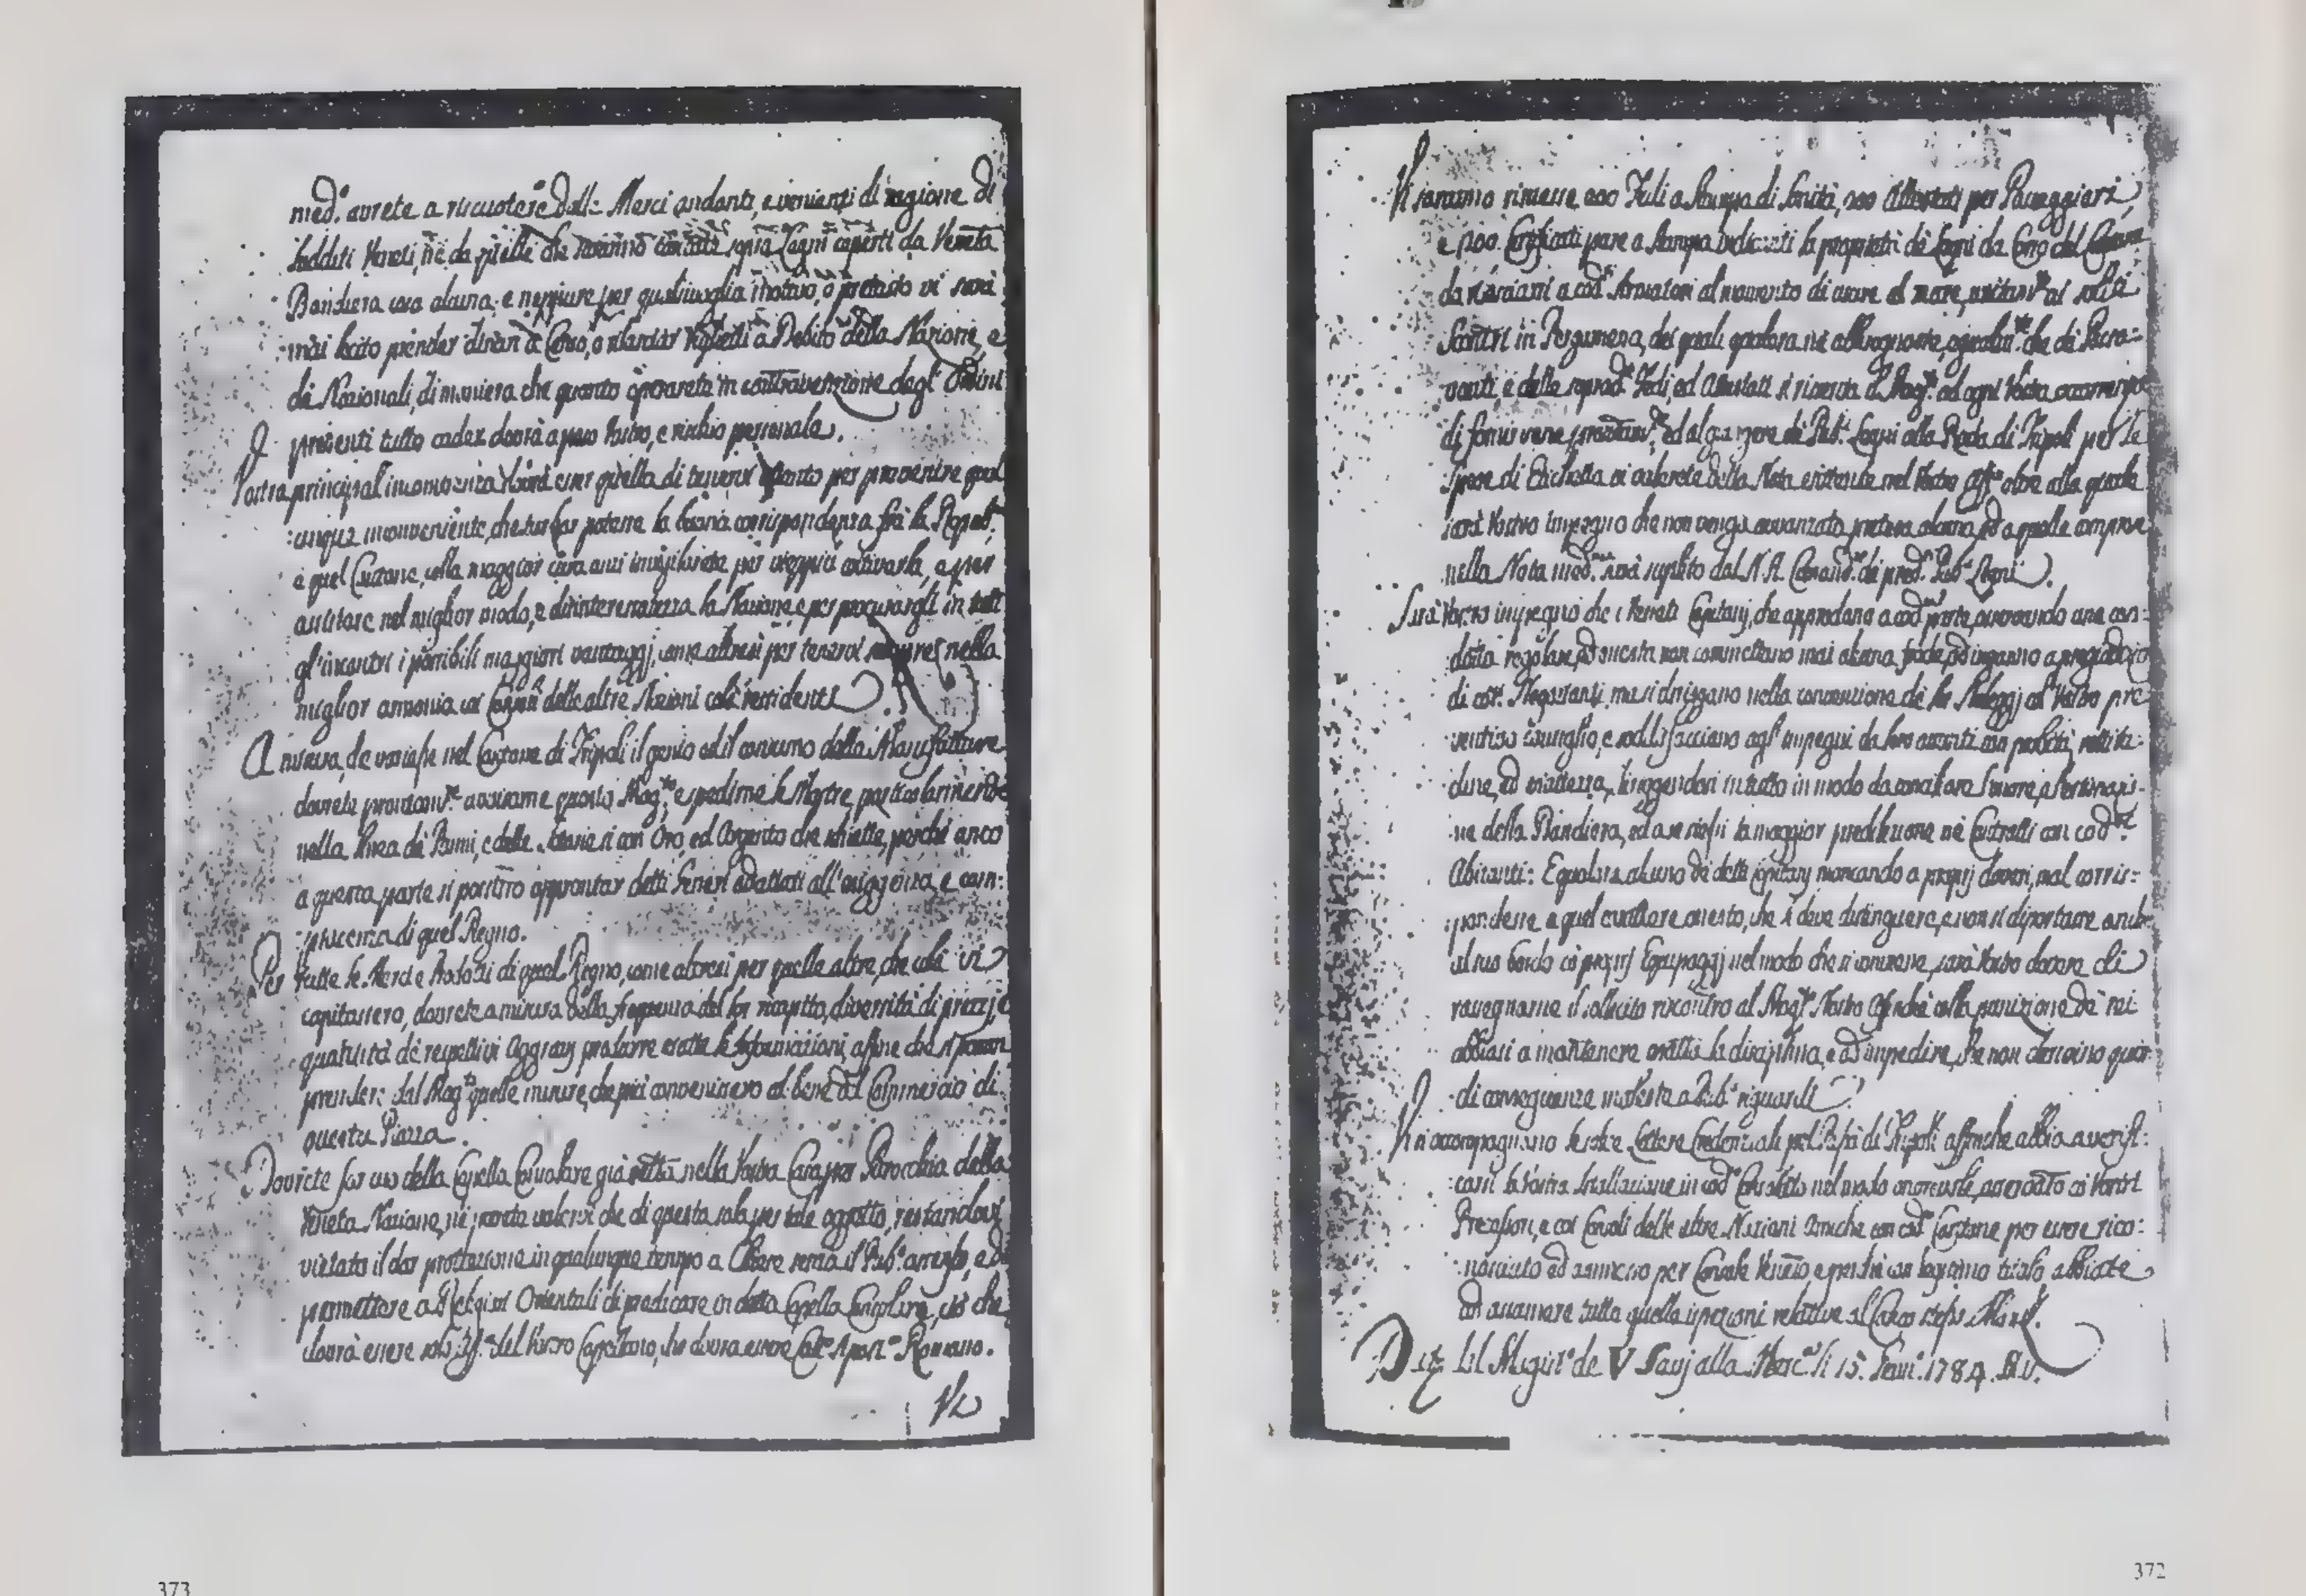 med.º avrete a riscuotere dalle Merci andanti, e venienti di ragione di
Sudditi Veneti, nè da quelle che saranno caricate sopra Legni coperti da Veneta
Bandiera cosa alcuna; e neppure per qualsivoglia motivo, o pretesto vi sarà
mai lecito prender dinari a Censo, o rilasciar Viglietti a Debito della Nazione, e
de Nazionali, di maniera che quanto operarete in contravenzione degl' Ordini
presenti tutto cader dovrà a peso Vostro, e rischio personale.
Vostra principal' incombenza dovrà esser quella di tenervi attento per prevenire qual
:unque inconveniente, che turbar potesse la buona corrispondenza frà la Repub.ª
e quel Cantone, colla maggior cura anzi invigilarete per vieppiù coltivarla, e per
assistere nel miglior modo, e disinteressatezza la Nazione, e per procurargli in tutti
gl'incontri i possibili maggiori vantaggj, come altresì per tenervi sempre nella
miglior armonia coi delle altre Nazioni colà residenti.
A misura, che varierà nel Cantone di Tripoli il genio ed il consumo delle Manufatture
dovrete prontam.te avvisarne questo Mag.to e spedirne le Mostre, particolarmente
nella de Panni, e delle Seterie sì con Oro, ed Argento che schiette, perchè anco
a questa parte si possino approntar detti Generi adattati all'esiggenza, e com:
:piacenza di quel Regno.
Per tutte le Merci e Prodotti di quel Regno, come altresì per quelle altre, che colà vi
capitassero, dovrete a misura della frequenza del lor ricapito, diversità di prezzi, e
quantità de respettivi Aggravj produrre esatte le Informazioni, affine che si possan
prender: dal Mag.to quelle misure, che più convenissero al bene del Commercio di
questa Piazza.
Dovrete far uso della Capella Consolare già eretta nella Vostra Casa per Parocchia della
Veneta Nazione, nè potrete valervi che di questa sola per tale oggetto, restandovi
vietato il dar protezione in qualunque tempo a Chiese senza il Pub.º assenso, e di
permettere a Religiosi Orientali di predicare in detta Capella Consolare, ciò che
dovrà essere solo del Vostro Capellano, che dovrà essere Cat.º Apost.º Romano.
Vi
373
Vi saranno rimesse 200 Fedi a Stampa di Sanità, 200 Attestati per Passeggieri,
e 200. pure a Stampa indicanti la proprietà de Legni da Corso del Cantone
da rilasciarsi a cod.i Armatori al momento di uscire al mare, unitam.te ai soliti
Scontri in Pergamena, dei quali qualora ne abbisognaste, egualm.te che de Passa:
:vanti, e delle soprad.e Fedi, ed Attestati si riserva il Mag.to ad ogni Vostra occorrenza
di farvi tenere prontam.te, ed al giungere de Pub.i Legni alla Rada di Tripoli per le
spese di Etichetta vi valerete della Nota esistente nel Vostro Off.º oltre alla quale
sarà Vostro impegno che non venga avvanzata pretesa alcuna, ed a quelle comprese
nella Nota med.ma sarà supplito dal N. H. Comand.te de pred.i Pub.i Legni.
Sarà Vostro impegno che i Veneti Capitanj, che approdano a cod.o porto, osservando una con:
:dotta regolare, ed onesta non commettano mai alcuna frode, ed inganno a pregiudizio
di cot.i Negozianti, ma si dirigano nella convenzione de lor Noleggj col Vostro pre:
:ventivo consiglio, e soddisfacciano agl'impegni da loro assunti con probità, rettitu:
:dine, ed esattezza, diriggendosi in tutto in modo da conciliare l'onore, e l'estimazio:
:ne della Bandiera, ed a se stessi la maggior predilezione nè Contratti con cod.i
Abitanti: E qualora alcuno de detti Capitanj mancando a proprj doveri, mal corris:
:pondesse a quel carattere onesto, che li deve distinguere, e non si diportasse anche
al suo bordo co' proprj Equipaggj nel modo che si conviene, sarà Vostro dovere di
rassegnarne il sollecito riscontro al Mag.to Nostro affinchè colla punizione de' rei
abbiasi a mantenere esatta la disciplina, e ad impedire, che non derivino quin:
:di conseguenze moleste a Pub.i riguardi.
Vi si accompagnano le solite Lettere Credenziali pel Bassà di Tripoli affinche abbia a verifi:
:carsi la Vostra Installazione in cod.o Consolato nel modo onorevole, accordato ai Vostri
Precessori, e coi Consoli delle altre Nazioni Amiche con cod.o Cantone per essere rico:
:nosciuto ed ammesso per Console Veneto, e perchè con legitimo titolo abbiate
ad assumere tutte quelle ispezioni relative al Carico stesso
Dat. dal Magist.º de V Savj alla Merc.ª li 15. Genn.º 1784. M.V.
372